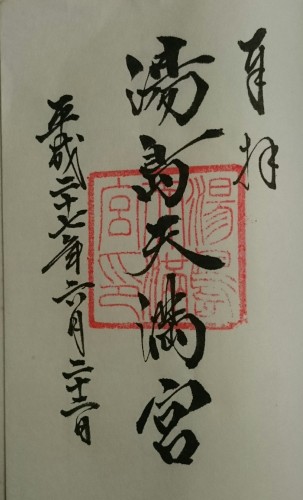 奉拝
湯島天満宮
平成二十七年六月二十二日
湯島天満宮印